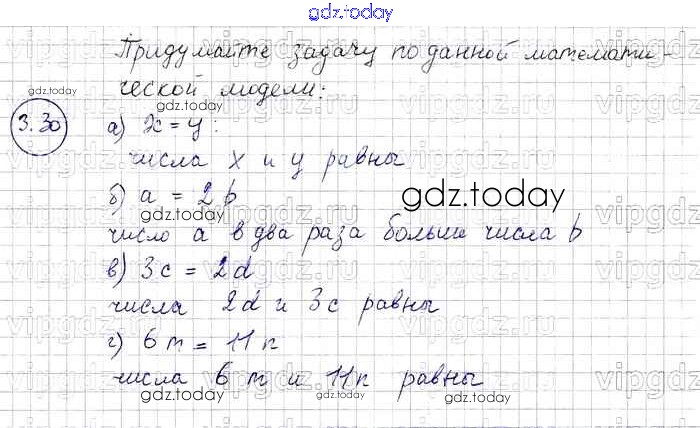 gdz.today
Придумайте задачу по данной математи-
gdz.today
ческой модели:
gdz.today
3.30
а) x = y :
числа x и y равны
gdz.today
б) a = 2b
gdz.today
число a в два раза больше числа b
в) 3c = 2d
gdz.today
числа 2d и 3c равны
г) 6m = 11n
числа 6m и 11n равны
gdz.today
gdz.today
vipgdz.ru